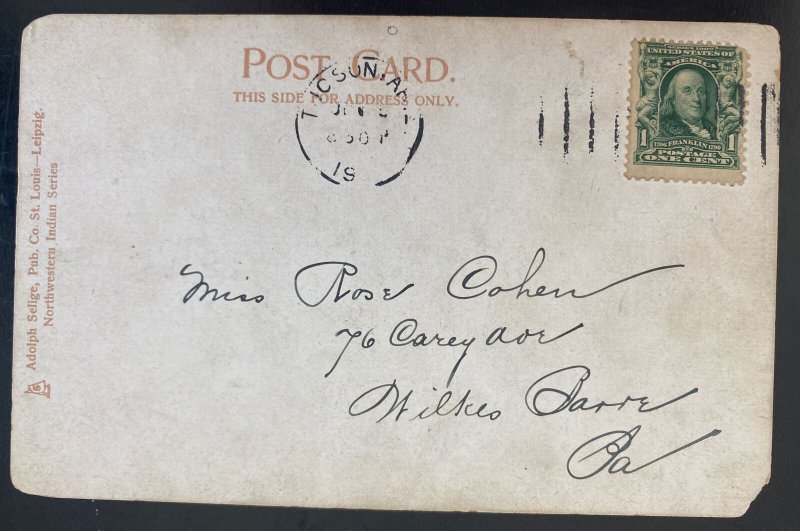 POST CARD.
THIS SIDE FOR ADDRESS ONLY.
TUCSON, ARIZ
830 P
19
SERIES 1902
UNITED STATES OF
AMERICA
1706 FRANKLIN 1790
POSTAGE
1 ONE CENT 1
Miss Rose Cohen
76 Carey Ave
Wilkes Barre
Pa
Adolph Selige, Pub. Co. St. Louis—Leipzig.
Northwestern Indian Series